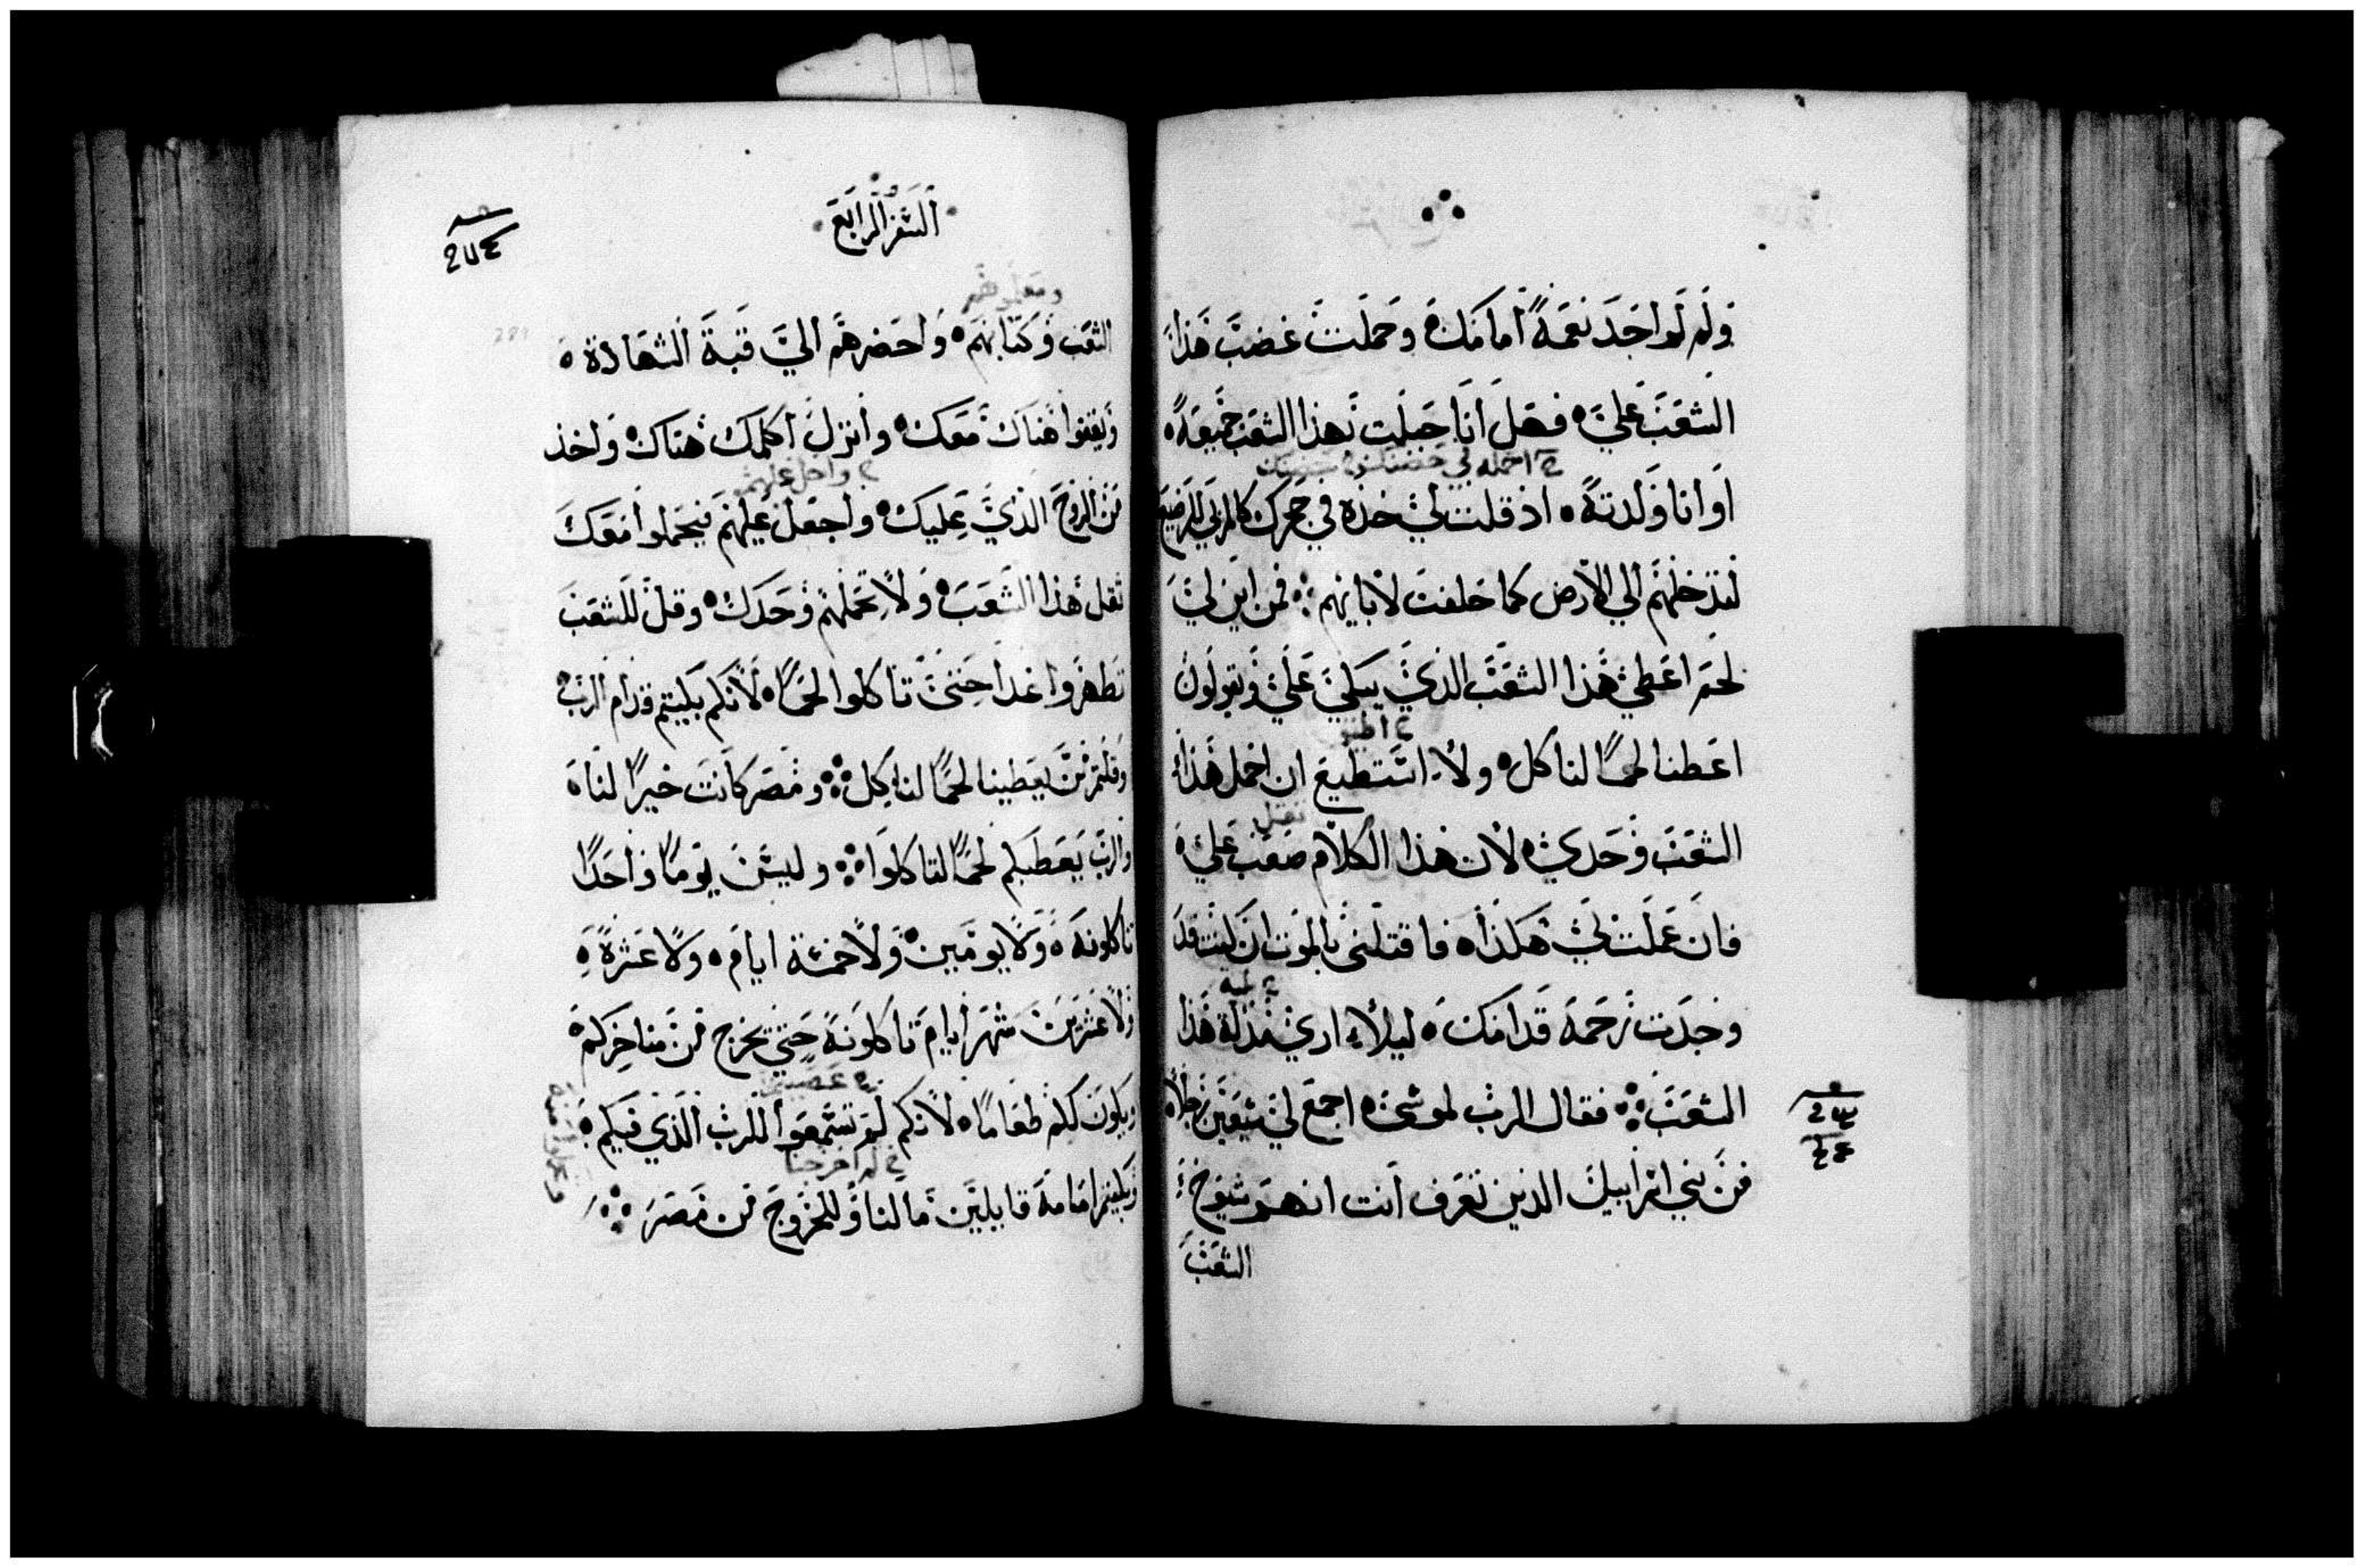 ولم لو اجد نعمةً امامك وحملت غضب هذا
الشعب علي فهل انا حبلت بهذا الشعب جميعه
احمله في حضنك
او انا ولدته اذ قلت لي خذه في حجرك كالمربي للرضيع
لتدخلهم الي الارض كما حلفت لابايهم فمن اين لي
لحم اعطي هذا الشعب الذي يبكي علي ويقولون
اعطنا لحمًا لناكل ولا استطيع ان احمل هذا
ثقل
الشعب وحدي لان هذا الكلام صعب علي
فان عملت لي هكذا فاقتلني بالموت ان كنت قد
وجدت رحمة قدامك ليلا اري مذلة هذا
الشعب فقال الرب لموسي اجمع لي سبعين رجلا
من بني اسراييل الذين تعرف انت انهم شيوخ
الشعب
السفر الرابع
الشعب وكتابهم واحضرهم الي قبة الشهادة
ويقفوا هناك معك وانزل اكلمك هناك واخذ
واحل عليهم
من الروح الذي عليك واجعل عليهم فيحملوا معك
ثقل هذا الشعب ولا تحملهم وحدك وقل للشعب
تطهروا غدا حتي تاكلوا لحمًا لانكم بكيتم قدام الرب
وقلتم من يعطينا لحمًا لناكل ومصر كانت خيرًا لنا
والرب يعطيكم لحمًا لتاكلوا وليس يومًا واحدًا
تاكلونه ولا يومين ولا خمسة ايام ولا عشرة
ولا عشرين شهر ايام تاكلونه حتي تخرج من مناخركم
ويكون لكم طعامًا لانكم لم تسمعوا للرب الذي فيكم
لم اخرجنا
وبكيتم امامه قايلين ما لنا وللخروج من مصر